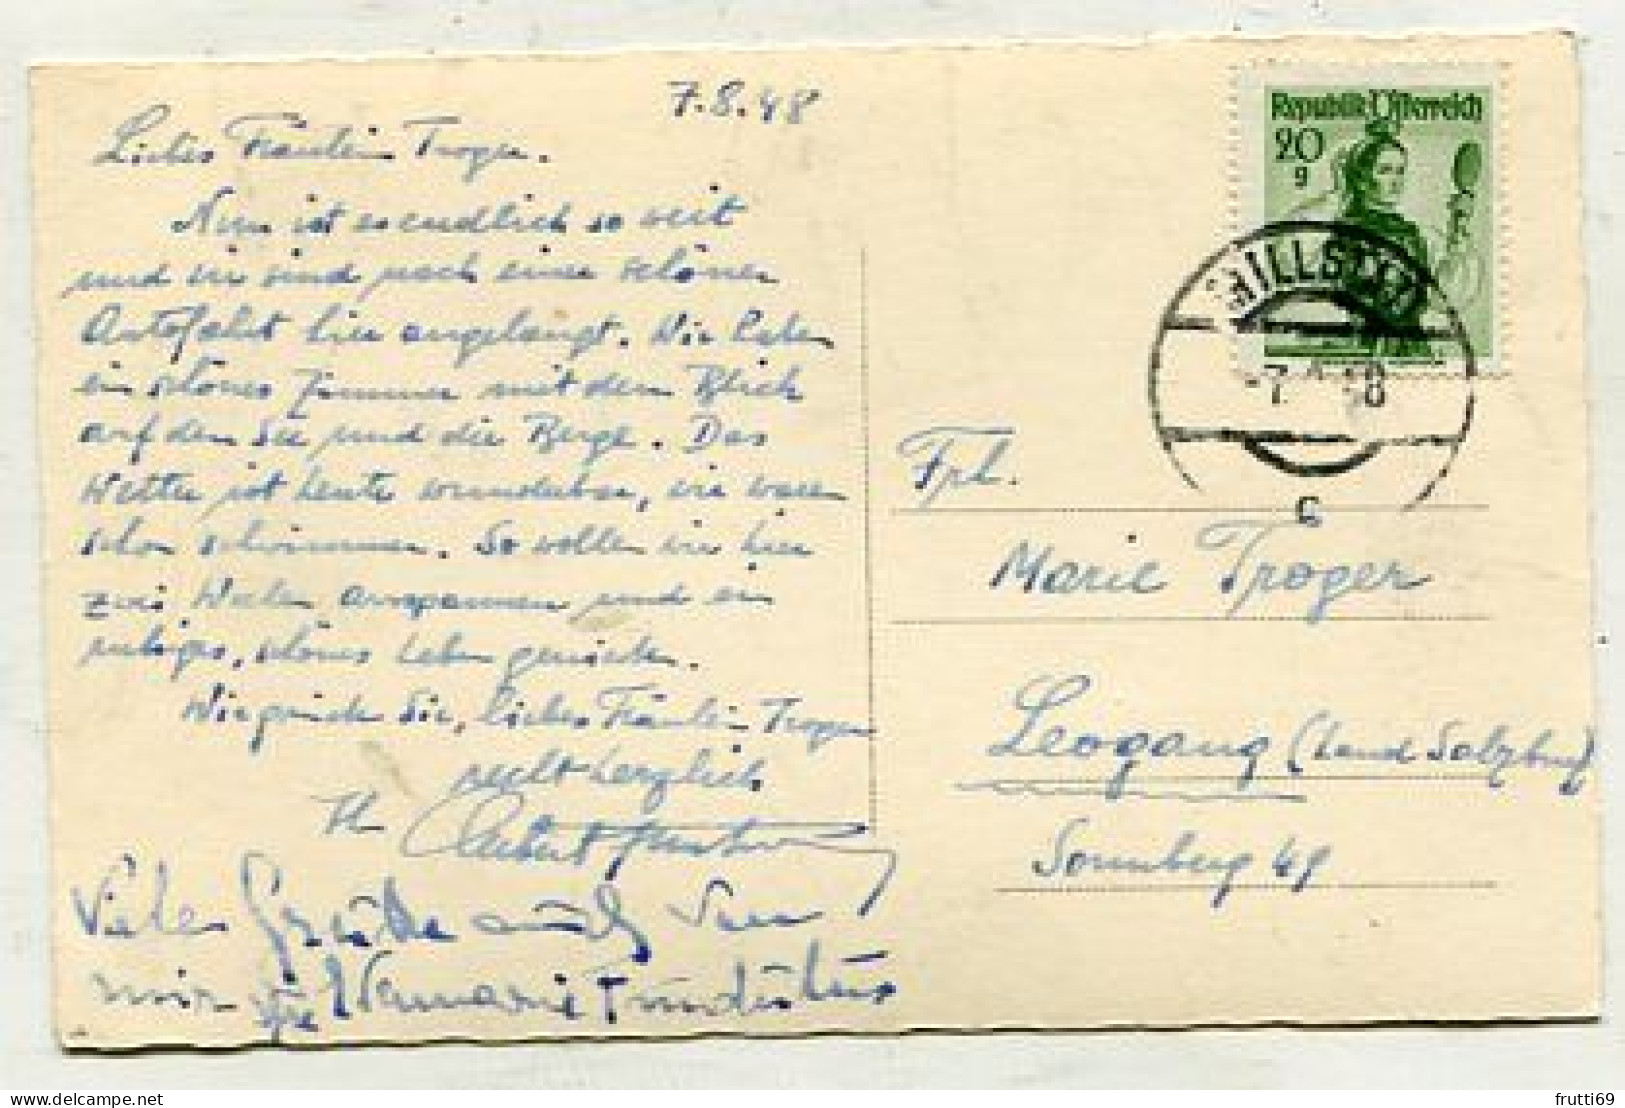 7.8.48
Liebes Fräulein Troger.
Nun ist es endlich so weit
und wir sind nach einer schönen
Autofahrt hier angelangt. Wir haben
ein schönes Zimmer mit dem Blick
auf den See und die Berge. Das
Wetter ist heute wunderbar, wir waren
schon schwimmen. So wollen wir hier
zwei Wochen ausspannen und ein
ruhiges, schönes Leben genießen.
Wir grüßen Sie, liebes Fräulein Troger
recht herzlich
Ihr
Viele Grüße auch von
mir Ihre
Republik Österreich
20
g
MILLSTATT
-7. 48
c
Frl.
Marie Troger
Leogang (Land Salzburg)
Sonnberg 49
frutti69